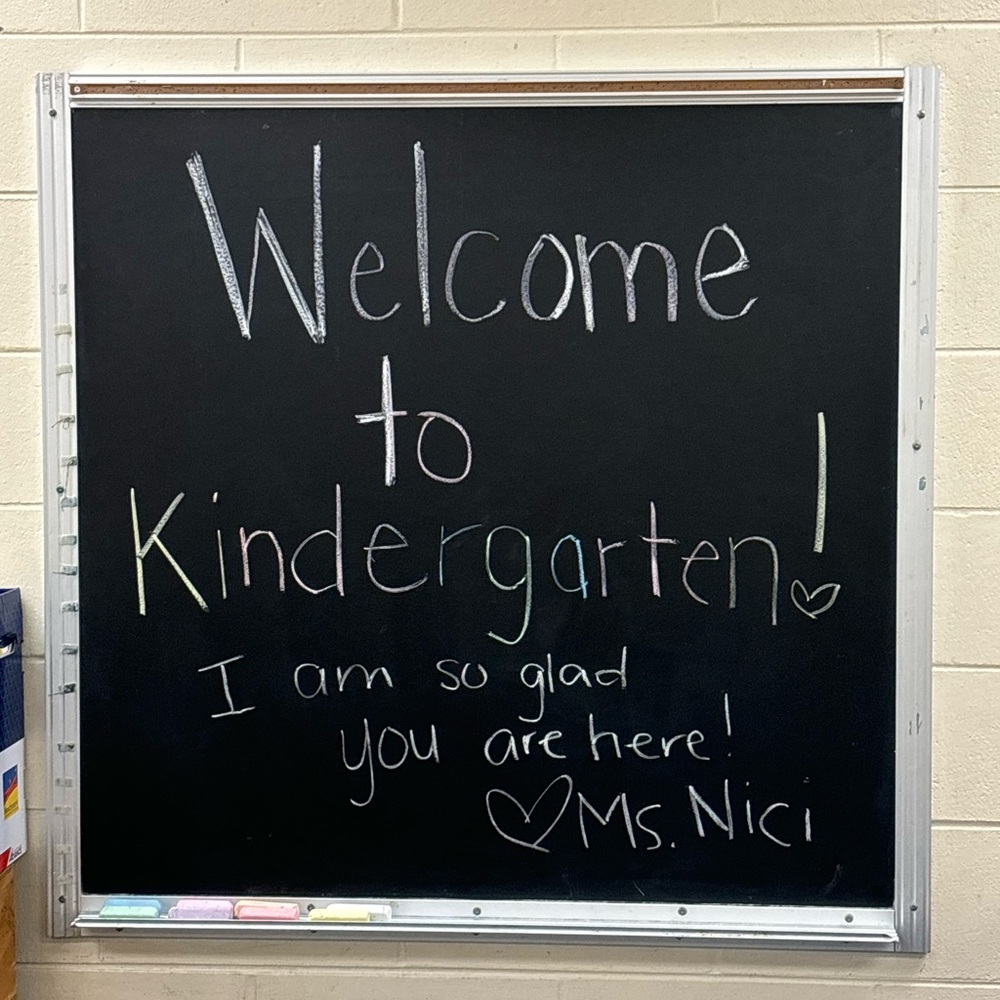 Welcome
to
Kindergarten!
I am so glad
you are here!
♡Ms. Nici